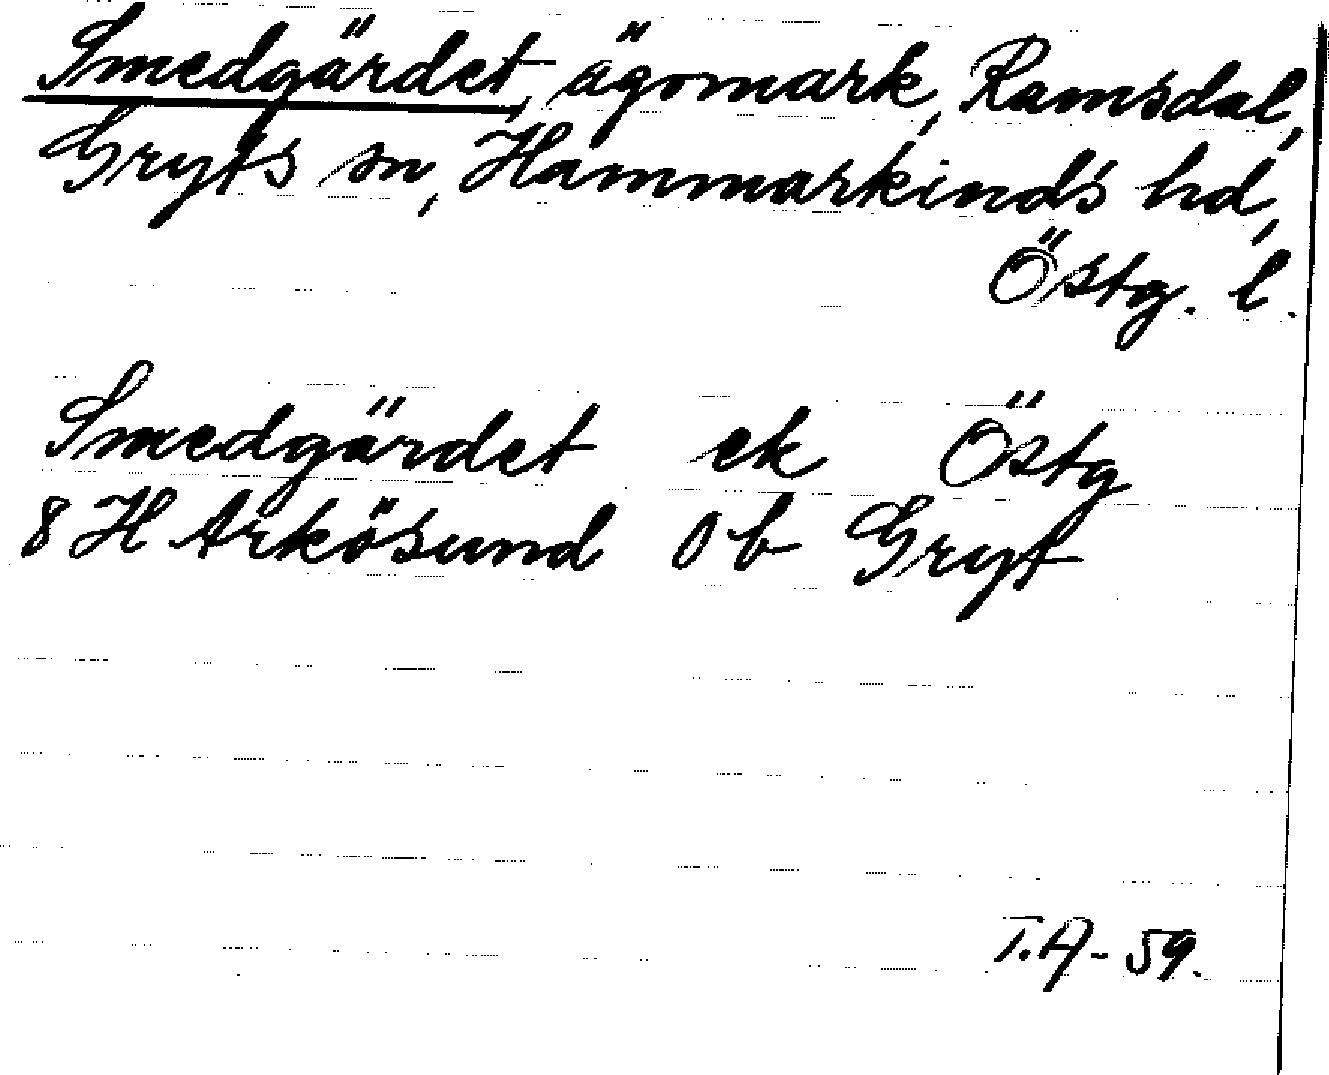 Smedgärdet, ägomark, Ramsdal,
Gryts sn, Hammarkinds hd,
Östg. l.
Smedgärdet ek Östg
8 H Arkösund 0 b Gryt
T.A-59.